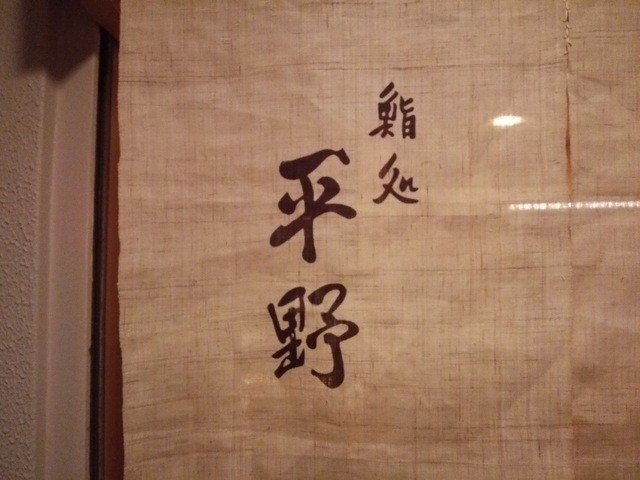 鮨処
平野